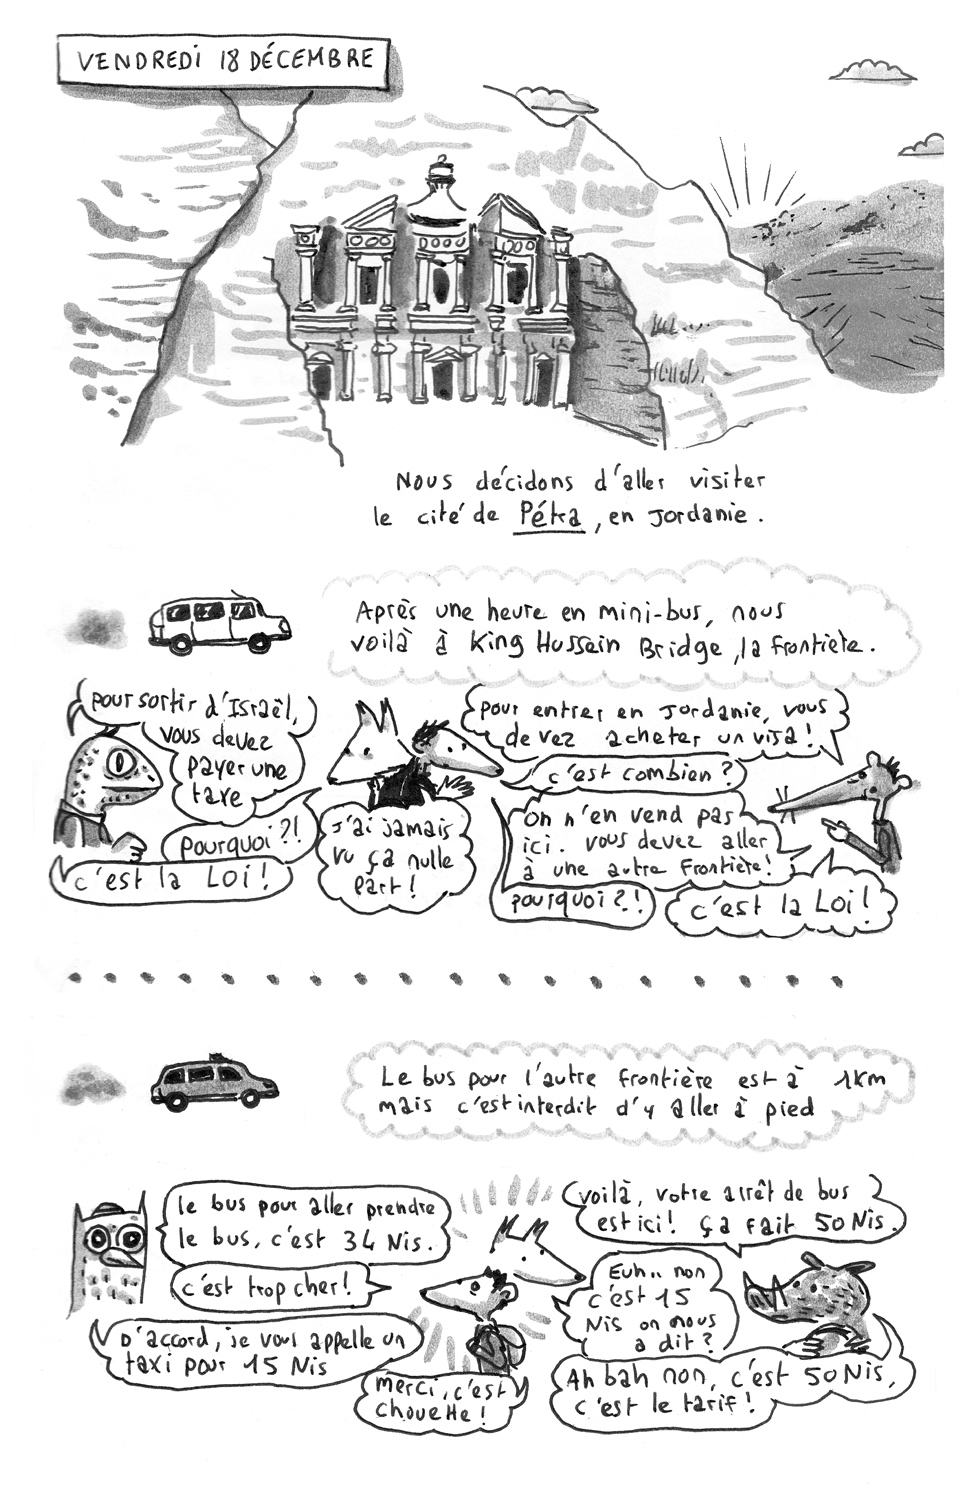 VENDREDI 18 DÉCEMBRE
Nous décidons d'aller visiter
le cité de Pétra, en Jordanie.
Après une heure en mini-bus, nous
voilà à King Hussein Bridge, la frontière.
pour sortir d'Israël,
vous devez
payer une
taxe
pourquoi ?!
c'est la Loi !
J'ai jamais
vu ça nulle
part !
pour entrer en Jordanie, vous
devez acheter un visa !
c'est combien ?
On n'en vend pas
ici. vous devez aller
à une autre frontière !
pourquoi ?!
c'est la Loi !
Le bus pour l'autre frontière est à 1km
mais c'est interdit d'y aller à pied
le bus pour aller prendre
le bus, c'est 34 Nis.
c'est trop cher !
D'accord, je vous appelle un
taxi pour 15 Nis
merci, c'est
chouette !
voilà, votre arrêt de bus
est ici ! ça fait 50 Nis.
Euh.. non
c'est 15
Nis on nous
a dit ?
Ah bah non, c'est 50 Nis,
c'est le tarif !